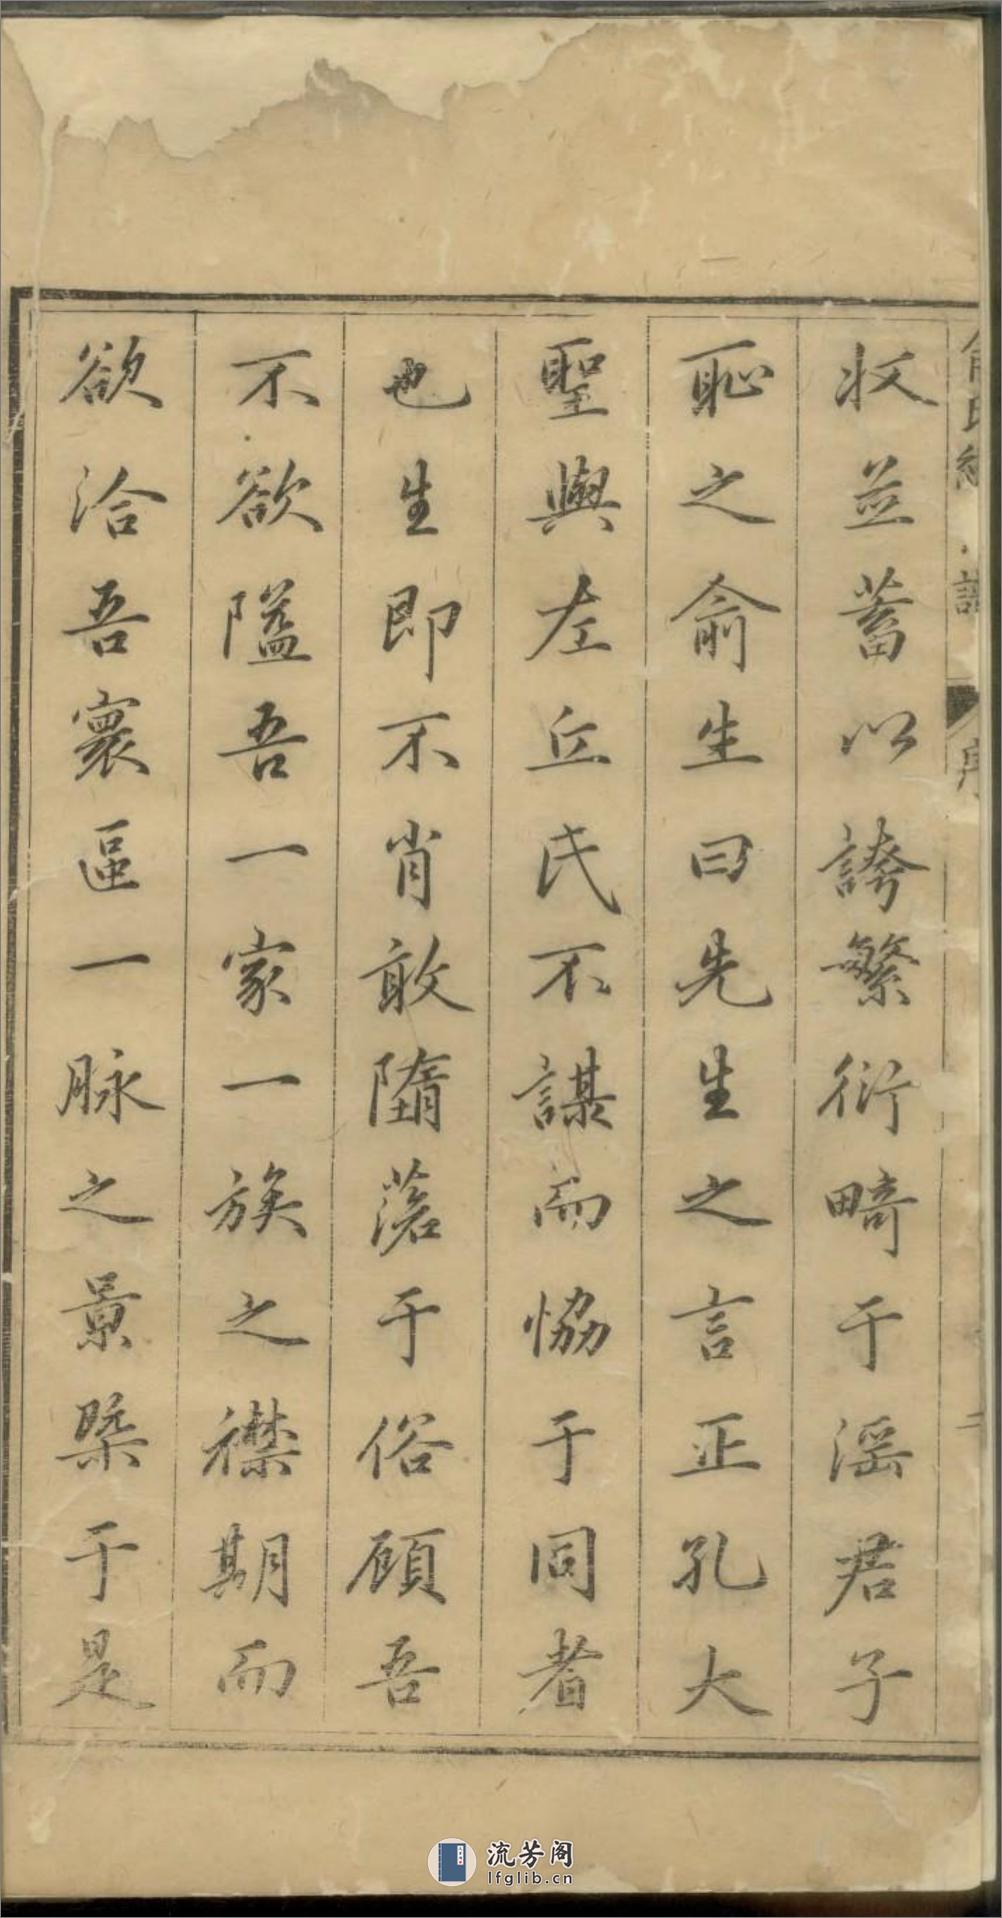 俞氏統譜 序
收並蓄以誇繁衍畸于滛君子
恥之俞生曰先生之言正孔大
聖與左丘氏不謀而恊于同者
也生即不肖敢隳落于俗顧吾
不欲隘吾一家一族之襟期而
欲洽吾寰區一脉之景槩于是
流芳阁
lfglib.cn